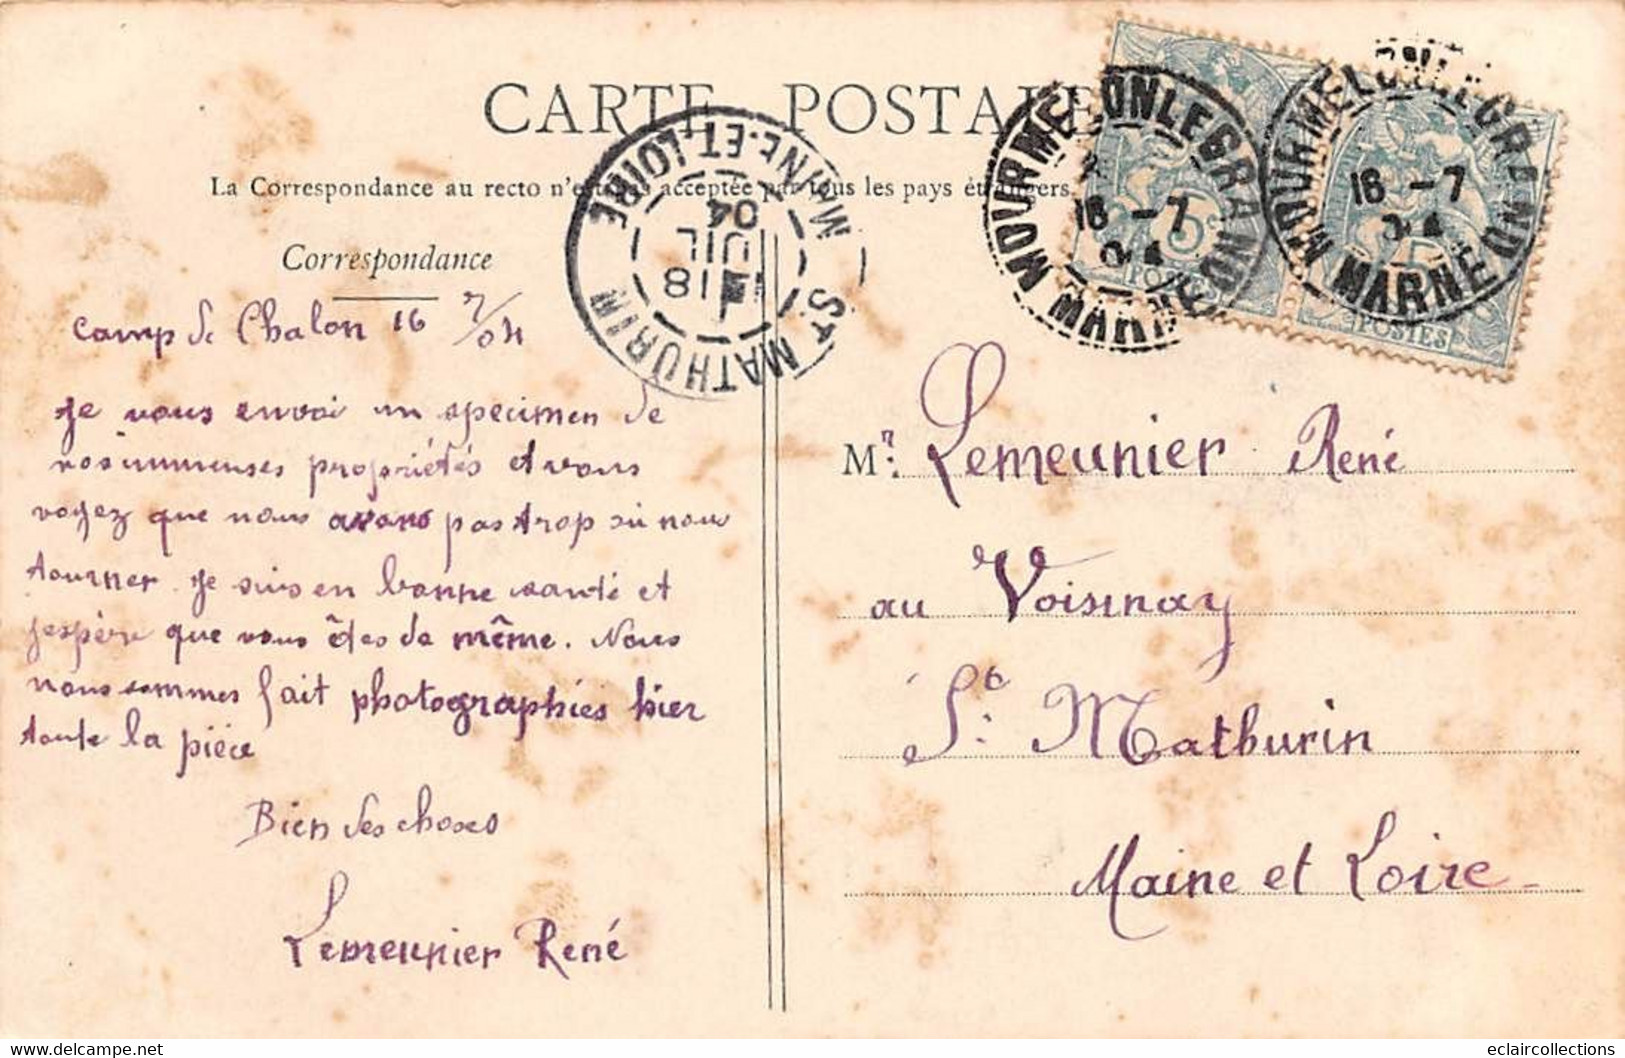 CARTE POSTALE
La Correspondance au recto n'est pas acceptée par tous les pays étrangers.
Correspondance
Camp de Chalon 16 7/04
Je vous envoi un specimen de
nos immenses propriétés et vous
voyez que nous avons pas trop où nous
tourner. Je suis en bonne santé et
j'espère que vous êtes de même. Nous
nous sommes fait photographiés hier
toute la pièce
Bien des choses
Lemeunier René
ST MATHURIN
MAINE-ET-LOIRE
18
JUIL
04
MOURMELON LE GRAND
16 -7
04
MARNE
5
POSTES
MOURMELON LE GRAND
16 -7
04
MARNE
5
POSTES
Mr. Lemeunier René
au Voisinay
St. Mathurin
Maine et Loire
www.delcampe.net
eclaircollections